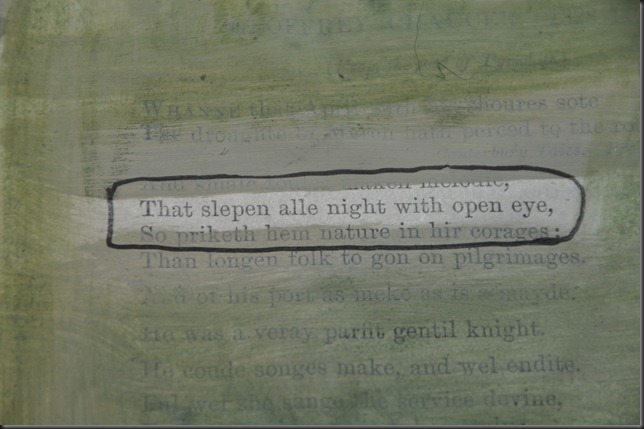 GEOFFREY CHAUCER
WHANNE that April with his shoures sote
The droughte of March hath perced to the
And smale maken melodie,
That slepen alle night with open eye,
So priketh hem nature in hir corages;
Than longen folk to gon on pilgrimages.
And of his port as meke as is a mayde.
He was a veray parfit gentil knight.
He coude songes make, and wel endite.
Ful wel she sange the service devine,